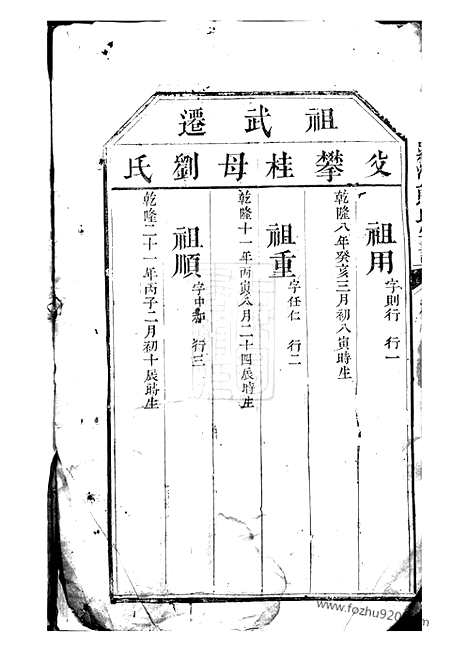 祖武遷
父攀桂母劉氏
祖用
字則行 行一
乾隆八年癸亥三月初八寅時生
祖重
字任仁 行二
乾隆十一年丙寅八月二十四辰時生
祖順
字中和 行三
乾隆二十一年丙子二月初十辰時生
www.fozhu920.com